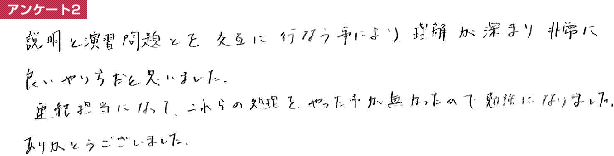 アンケート2
説明と演習問題とを交互に行なう事により理解が深まり非常に
良いやり方だと思いました。
担当になって、これらの処理をやった事が無かったので勉強になりました。
ありがとうございました。